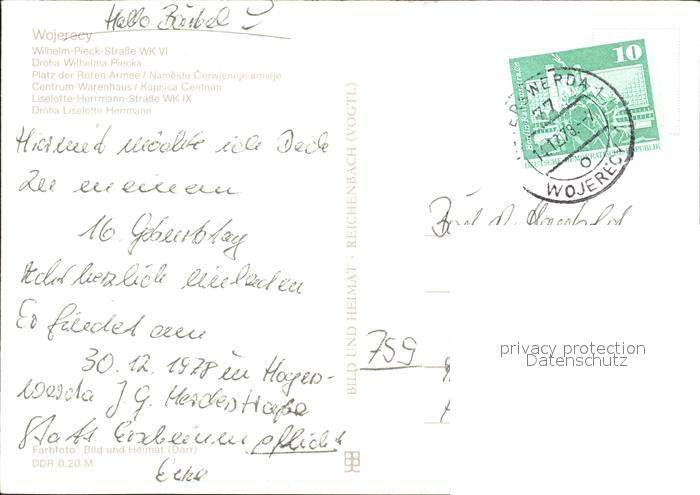 Hallo Bärbel
Wojerecy
Wilhelm-Pieck-Straße WK VI
Dróha Wilhelma Piecka
Platz der Roten Armee / Naměsto Čerwjeneje armeje
Centrum-Warenhaus / Kupnica Centrum
Liselotte-Herrmann-Straße WK IX
Dróha Liselotte Herrmann
Hiermit möchte ich Dich
zu meinem
16. Geburtstag
recht herzlich einladen
Es findet am
30.12.1978 in Hoyers-
werda J G. Herderstraße
statt Erscheinen pflicht
Farbfoto: Bild und Heimat (Darr)
DDR 0,20 M
BILD UND HEIMAT · REICHENBACH (VOGTL)
10
DEUTSCHE DEMOKRATISCHE REPUBLIK
HOYERSWERDA 1
77
WOJERECY
759
privacy protection
Datenschutz